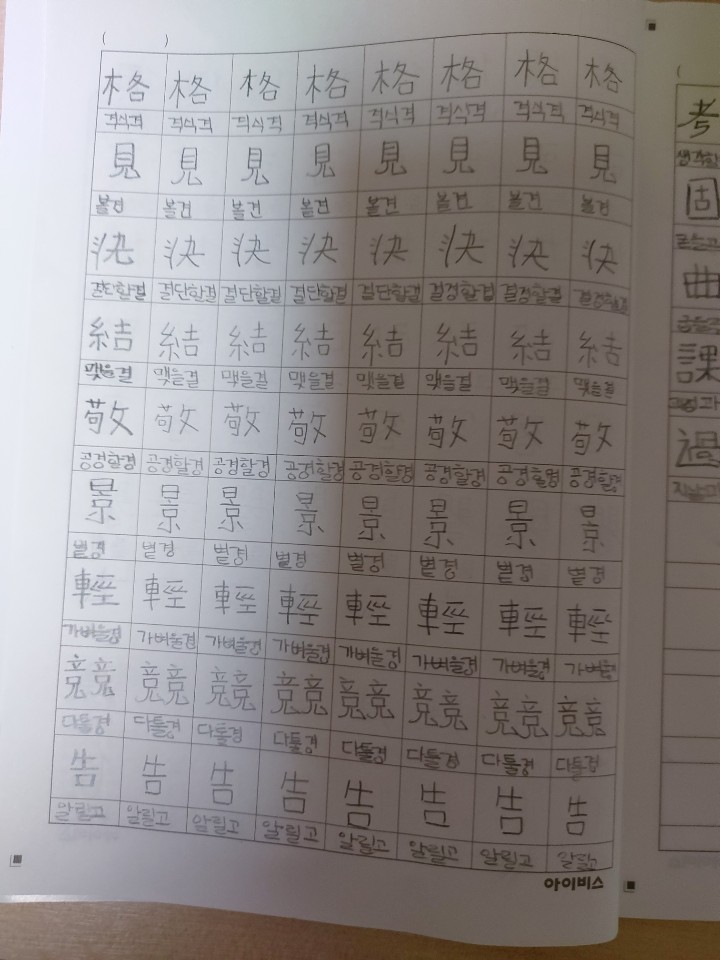 ( )
格 格 格 格 格 格 格 格
격식격 격식격 격식격 격식격 격식격 격식격 격식격 격식격
見 見 見 見 見 見 見 見
볼견 볼견 볼견 볼견 볼견 볼견 볼견 볼견
決 決 決 決 決 決 決 決
결단할결 결단할결 결단할결 결단할결 결단할결 결정할결 결정할결 결정할결
結 結 結 結 結 結 結 結
맺을결 맺을결 맺을결 맺을결 맺을결 맺을결 맺을결 맺을결
敬 敬 敬 敬 敬 敬 敬 敬
공경할경 공경할경 공경할경 공경할경 공경할경 공경할경 공경할경 공경할경
景 景 景 景 景 景 景 景
볕경 볕경 볕경 볕경 볕경 볕경 볕경 볕경
輕 輕 輕 輕 輕 輕 輕 輕
가벼울경 가벼울경 가벼울경 가벼울경 가벼울경 가벼울경 가벼울경 가벼울경
競 競 競 競 競 競 競 競
다툴경 다툴경 다툴경 다툴경 다툴경 다툴경 다툴경 다툴경
告 告 告 告 告 告 告 告
알릴고 알릴고 알릴고 알릴고 알릴고 알릴고 알릴고 알릴고
아이비스
(
考
생각할
固
曲
課
過